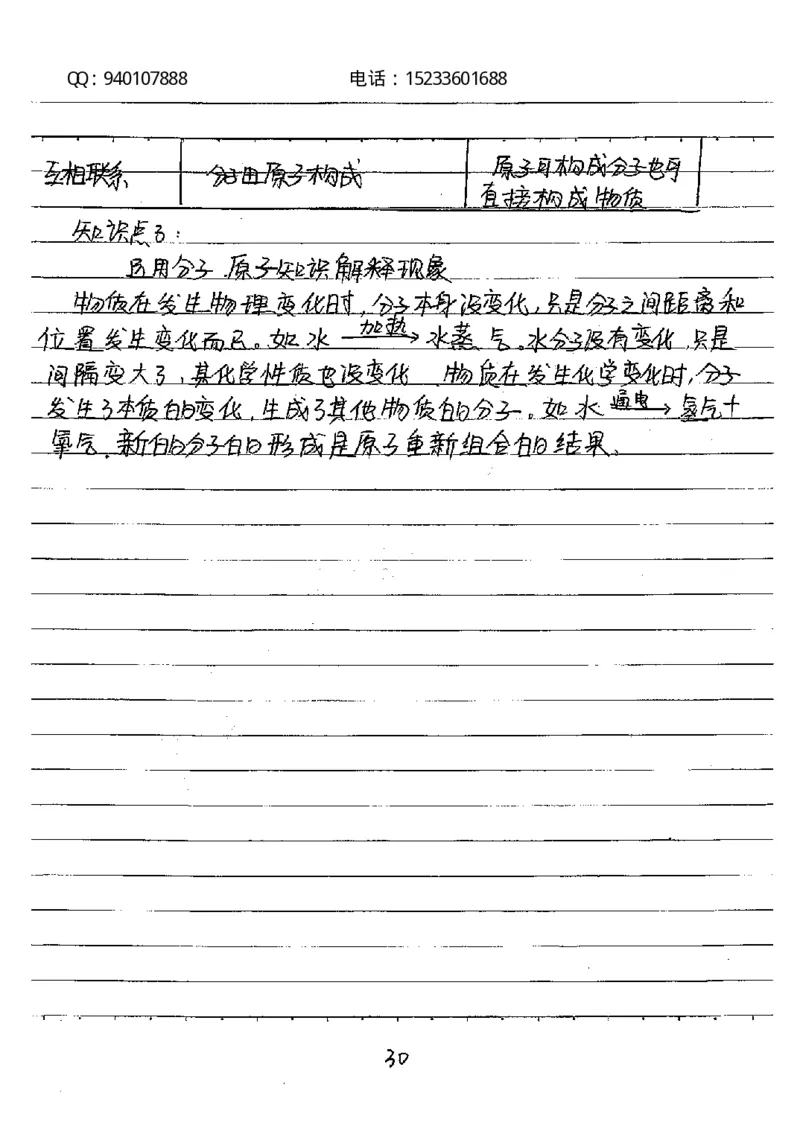 QQ：940107888 电话：15233601688
互相联系 分子由原子构成 原子可构成分子也可
直接构成物质
知识点3：
应用分子 原子知识解释现象
物质在发生物理变化时，分子本身没变化，只是分子之间距离和
位置发生变化而已。如水 加热→ 水蒸气。水分子没有变化，只是
间隔变大了，其化学性质也没变化 物质在发生化学变化时，分子
发生了本质的变化，生成了其他物质的分子。如水 通电→ 氢气＋
氧气．新的分子的形成是原子重新组合的结果。
30